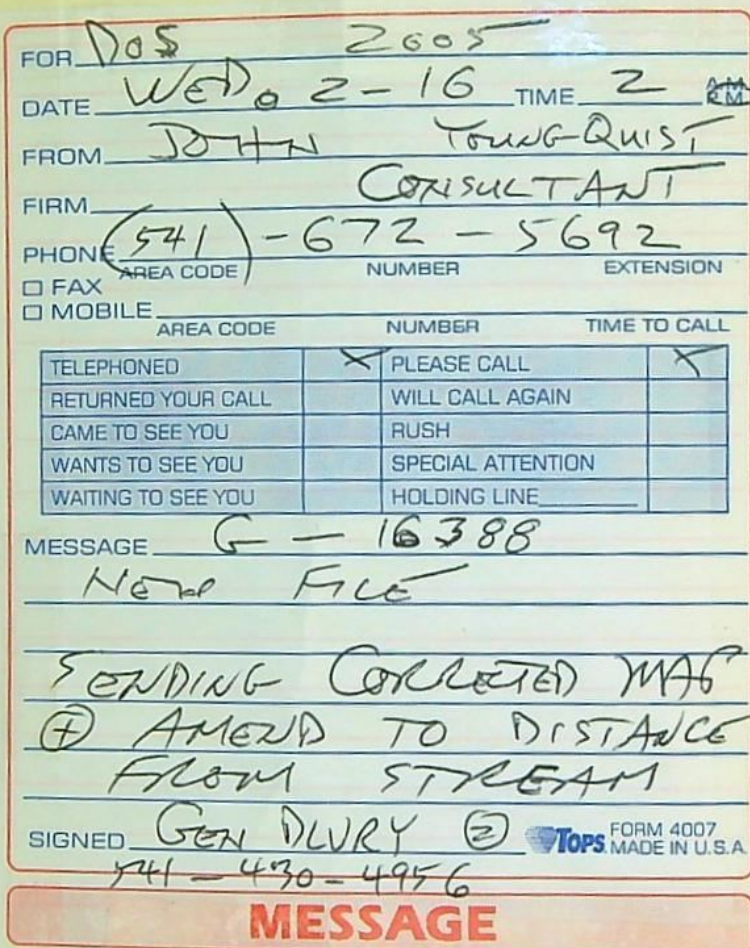 FOR DOS 2005
DATE WED. 2-16 TIME 2 A.M. P.M.
FROM JOHN YOUNG-QUIST
FIRM CONSULTANT
PHONE (541)-672-5692
AREA CODE NUMBER EXTENSION
☐ FAX
☐ MOBILE
AREA CODE NUMBER TIME TO CALL
TELEPHONED X PLEASE CALL X
RETURNED YOUR CALL WILL CALL AGAIN
CAME TO SEE YOU RUSH
WANTS TO SEE YOU SPECIAL ATTENTION
WAITING TO SEE YOU HOLDING LINE
MESSAGE G-16388
NEW FILE
SENDING CORRETED MAP
+ AMEND TO DISTANCE
FROM STREAM
SIGNED GEN 2 TOPS FORM 4007
MADE IN U.S.A.
541-430-4956
MESSAGE